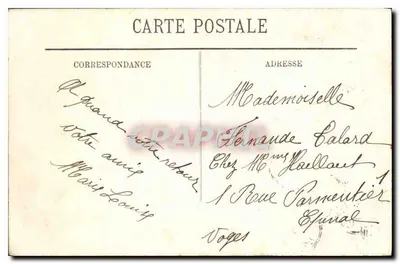 CARTE POSTALE
CORRESPONDANCE
A quand votre retour
votre amie
Marie Louise
ADRESSE
Mademoiselle
Fernande Calard
Chez Mme Haillant
1 Rue Parmentier
Epinal
Vosges